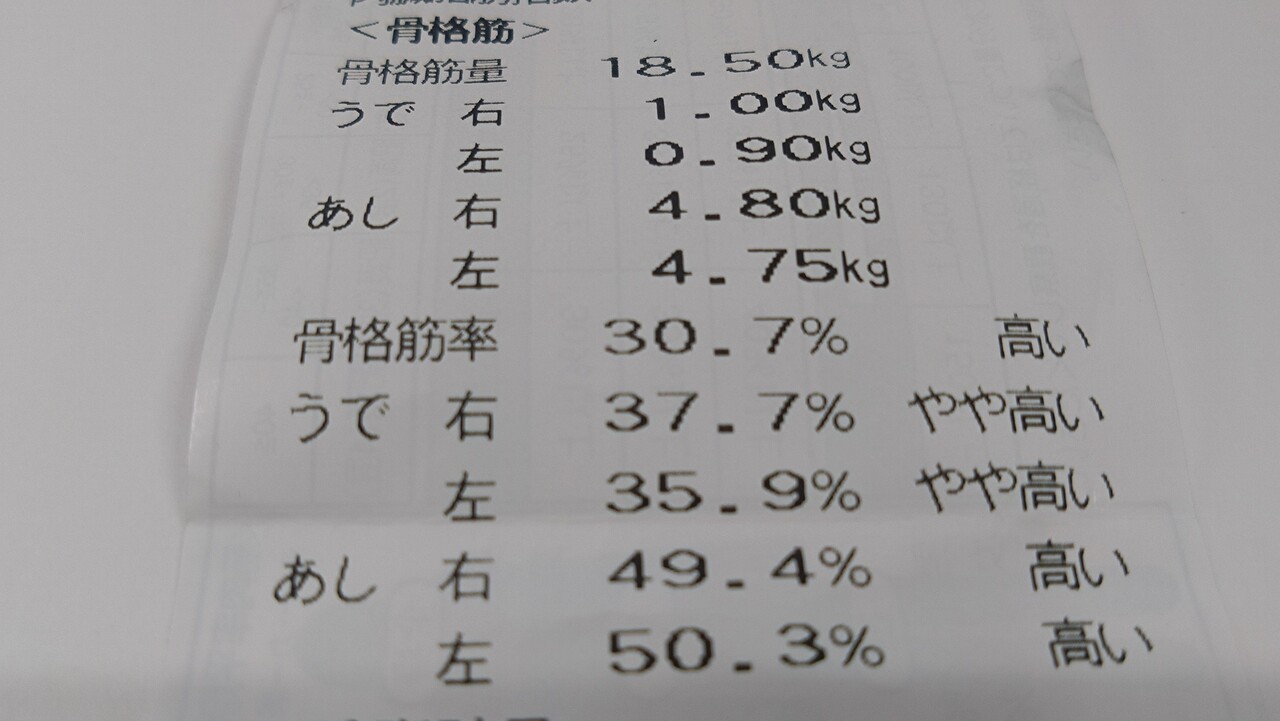 ＜骨格筋＞
骨格筋量 18.50kg
うで 右 1.00kg
左 0.90kg
あし 右 4.80kg
左 4.75kg
骨格筋率 30.7% 高い
うで 右 37.7% やや高い
左 35.9% やや高い
あし 右 49.4% 高い
左 50.3% 高い